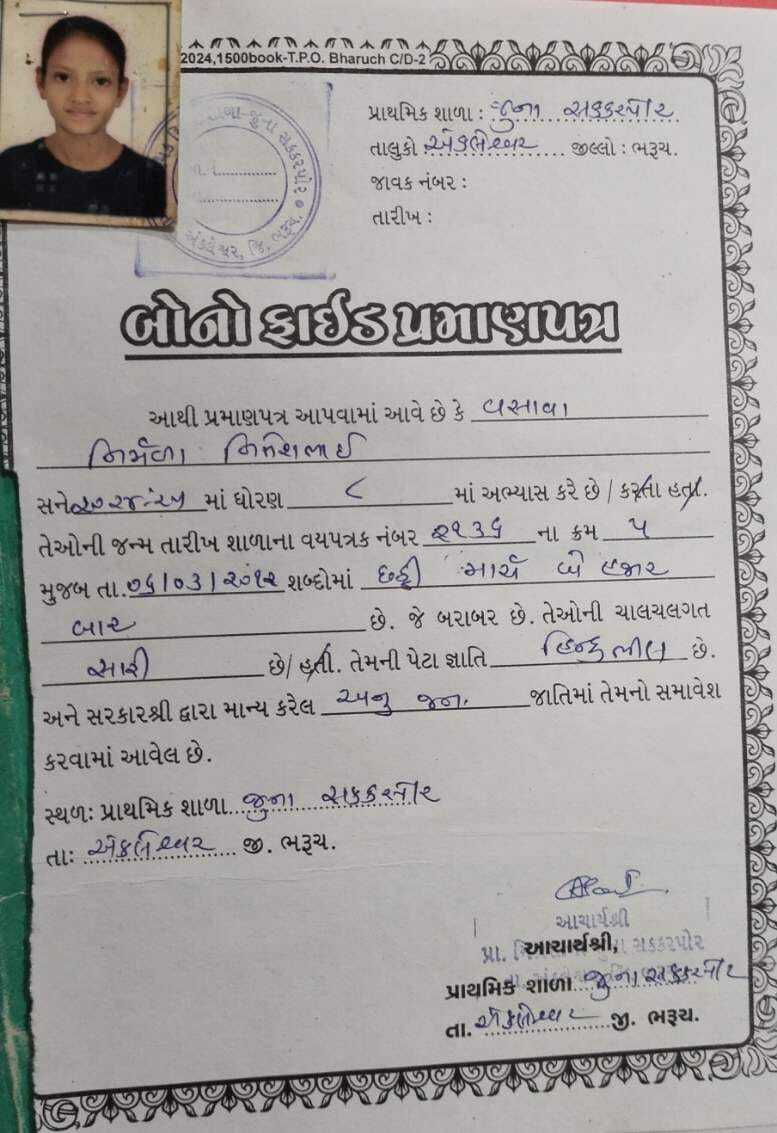 2024,1500book-T.P.O. Bharuch C/D-2
પ્રાથમિક શાળા : જુના સક્કરપોર
તાલુકો અંકલેશ્વર જીલ્લો : ભરૂચ.
જાવક નંબર :
તારીખ :
જુના સક્કરપોર
અંકલેશ્વર, જિ. ભરૂચ.
બોનોફાઈડ પ્રમાણપત્ર
આથી પ્રમાણપત્ર આપવામાં આવે છે કે વસાવા
નિર્મળા
સને ૨૦૨૪-૨૫ માં ધોરણ ૮ માં અભ્યાસ કરે છે / કરતા હતા.
તેઓની જન્મ તારીખ શાળાના વયપત્રક નંબર ૨૧૩૬ ના ક્રમ ૫
મુજબ તા. ૦૬/૦૩/૨૦૧૨ શબ્દોમાં છઠ્ઠી માર્ચ બે હજાર
બાર છે. જે બરાબર છે. તેઓની ચાલચલગત
સારી છે/ હતી. તેમની પેટા જ્ઞાતિ હિન્દુ ભીલ છે.
અને સરકારશ્રી દ્વારા માન્ય કરેલ અનુ જન. જાતિમાં તેમનો સમાવેશ
કરવામાં આવેલ છે.
સ્થળ: પ્રાથમિક શાળા જુના સક્કરપોર
તા: અંકલેશ્વર જી. ભરૂચ.
આચાર્યશ્રી
પ્રા. સક્કરપોર
આચાર્યશ્રી,
પ્રાથમિક શાળા જુના સક્કરપોર
તા. અંકલેશ્વર જી. ભરૂચ.